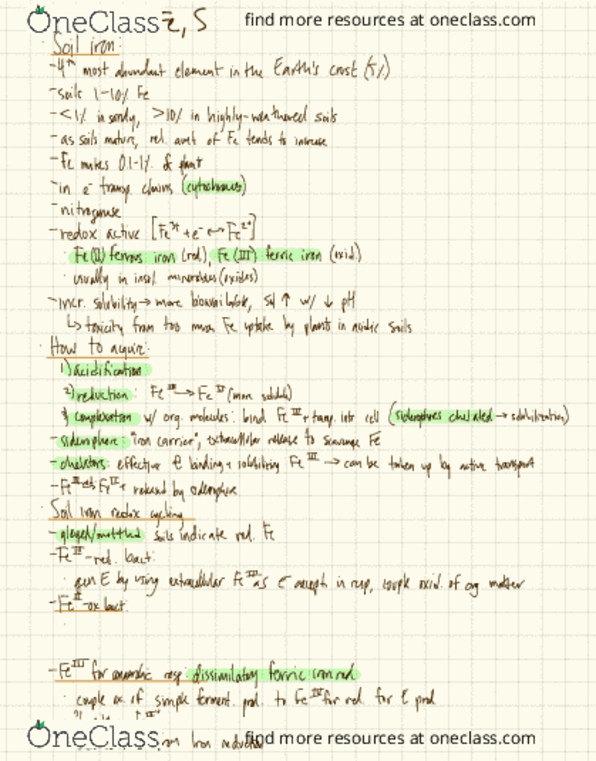 OneClass Fe, S find more resources at oneclass.com
Soil iron:
-4th most abundant element in the Earth's crust (5%)
-soils 1-10% Fe
-<1% in sandy, >10% in highly-weathered soils
-as soils mature, rel. amt of Fe tends to increase
-Fe makes 0.1-1% of plant
-in e⁻ transp. chains (cytochromes)
-nitrogenase
-redox active [Fe³⁺ + e⁻ ↔ Fe²⁺]
· Fe(II) ferrous iron (red.), Fe(III) ferric iron (oxid.)
· usually in insol. minerals (oxides)
-incr. solubility → more bioavailable, sol ↑ w/ ↓ pH
↳ toxicity from too much Fe uptake by plants in acidic soils
· How to acquire:
1) acidification
2) reduction: Fe III → Fe II (more soluble)
3) complexation w/ org. molecules: bind Fe III + transp. into cell (siderophores chelated → solubilization)
-siderophore: "iron carrier", extracellular release to scavenge Fe
-chelators: effective @ binding + solubilizing Fe III → can be taken up by active transport
-Fe III Fe II + released by siderophore
· Soil iron redox cycling
-gleyed/mottled soils indicate red. Fe
-Fe III-red. bact:
· gen E by using extracellular Fe III as e⁻ accept. in resp, couple oxid. of org matter
-Fe II-ox bact:
-Fe III for anaerobic resp: dissimilatory ferric iron red
· couple ox of simple ferment. prod. to Fe III for red. for E prod.
OneClass iron reduction find more resources at oneclass.com